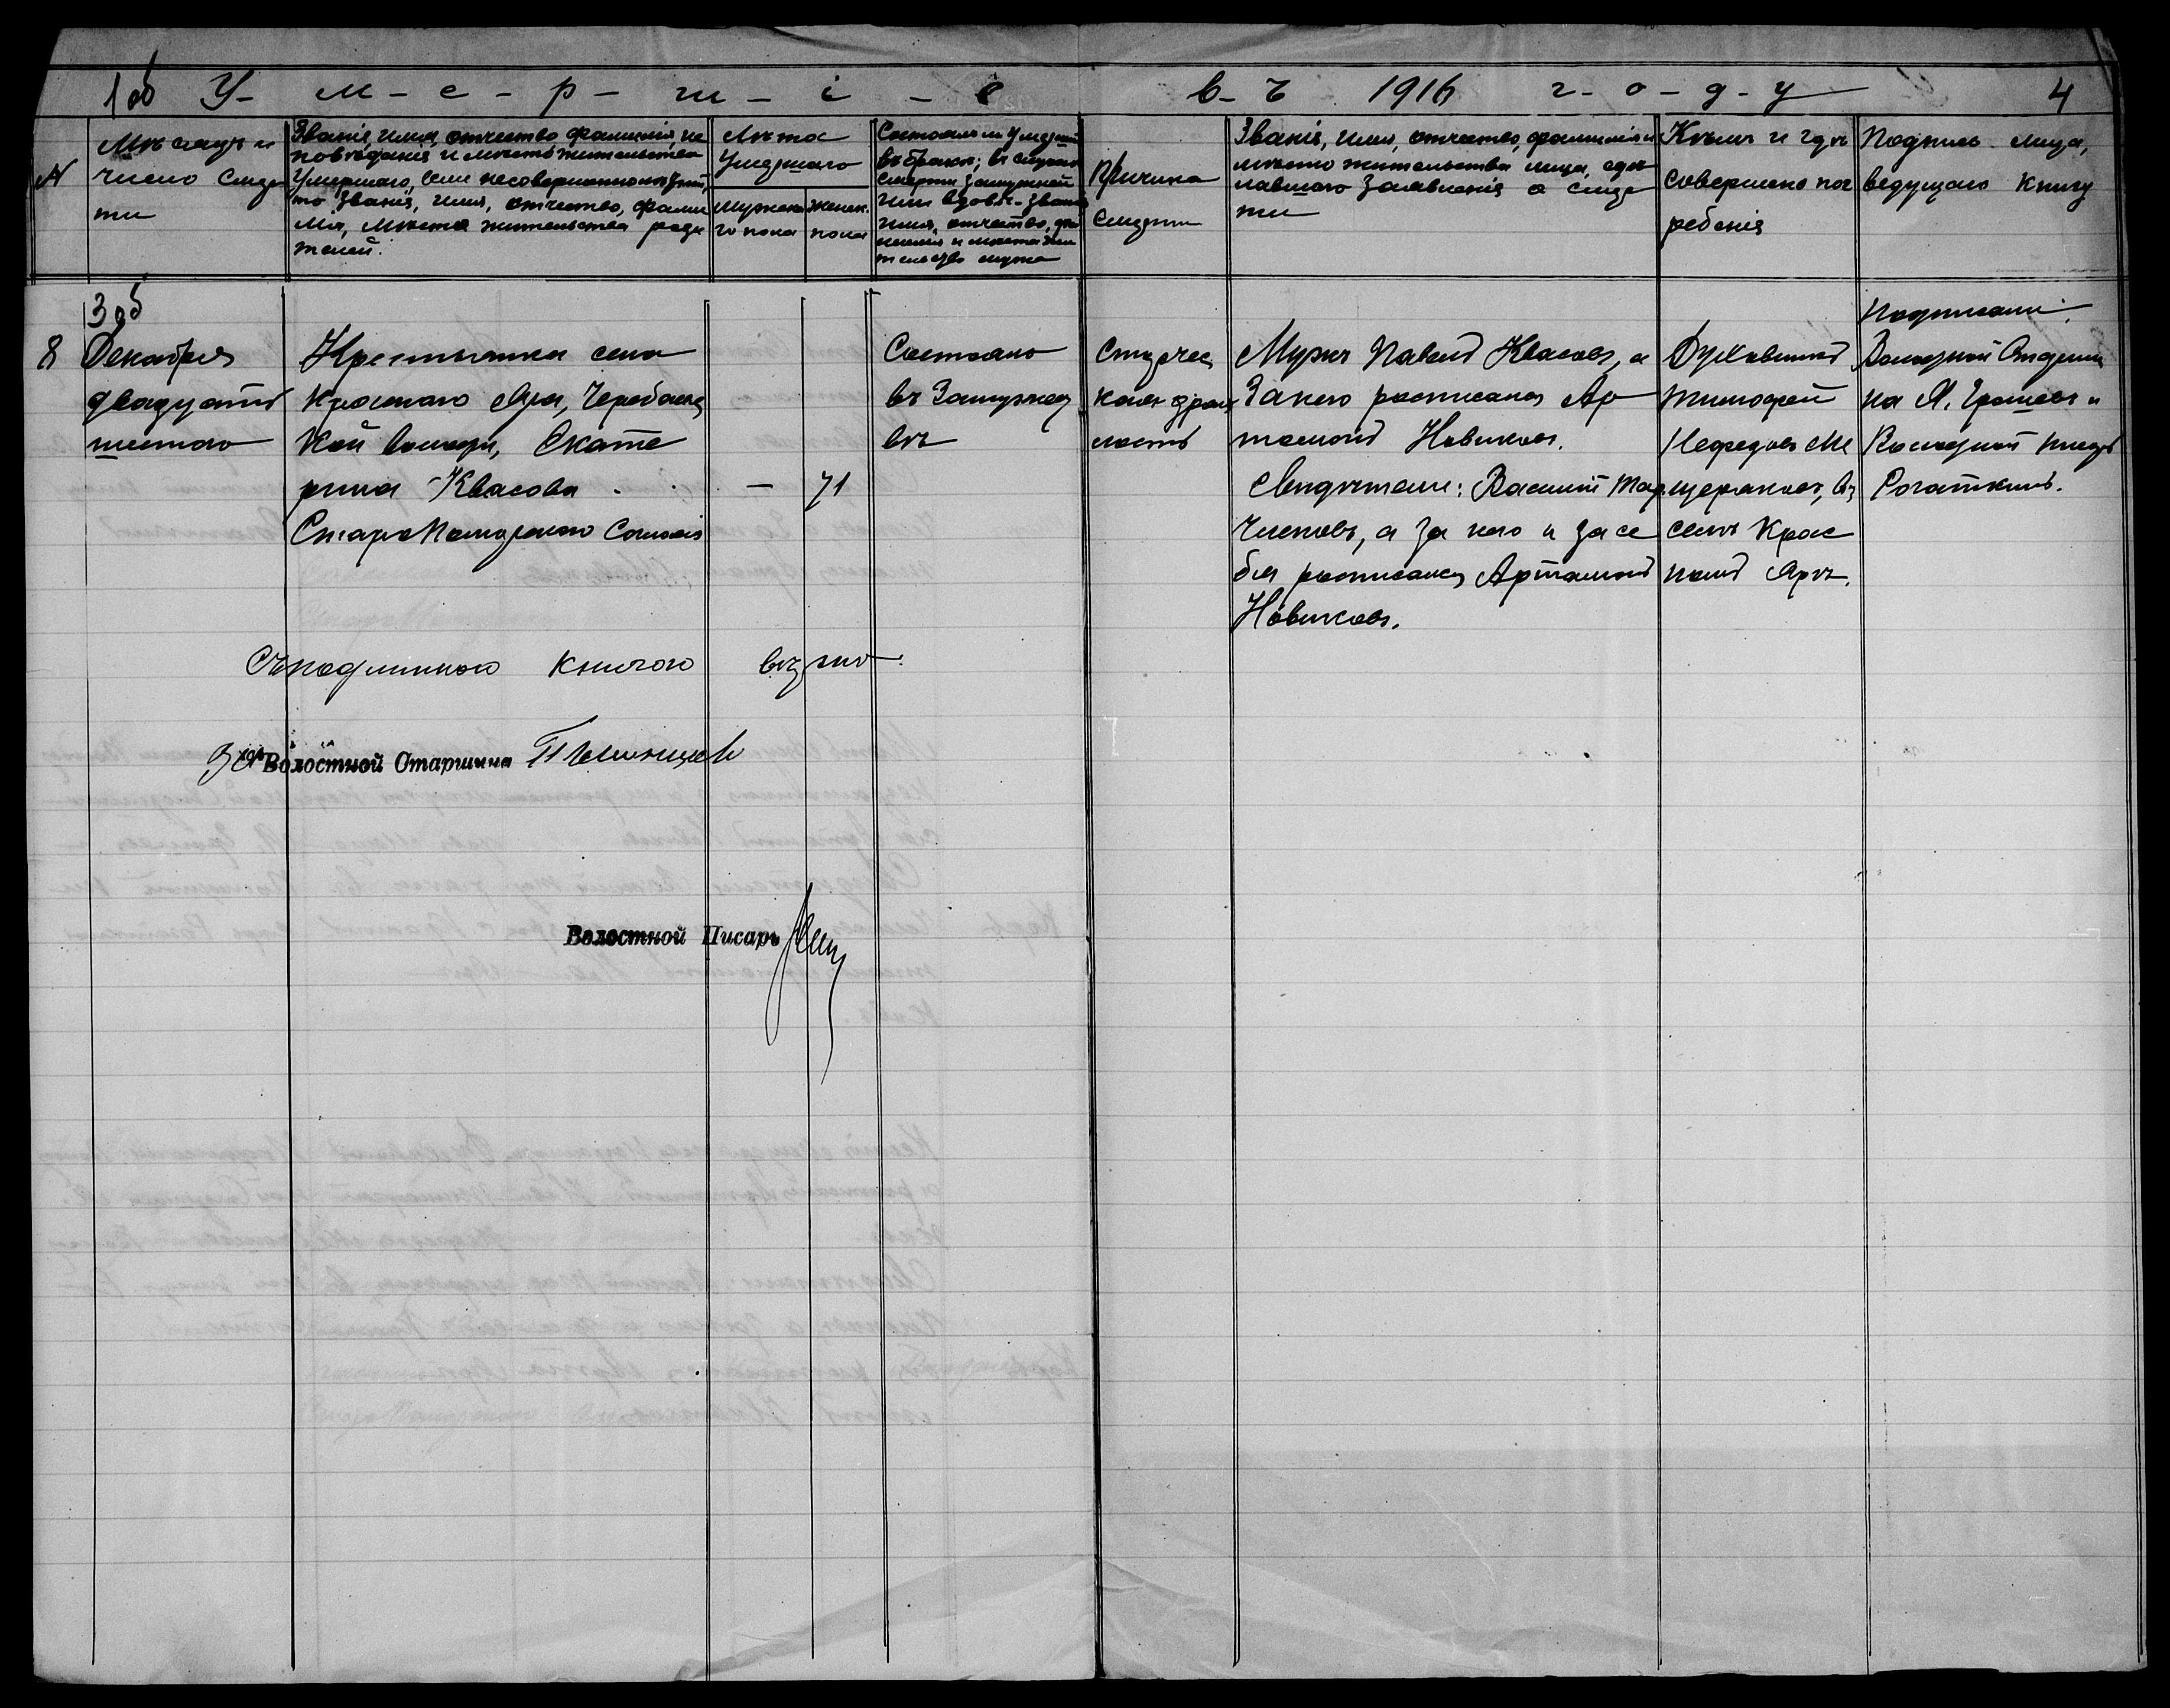 1об У-м-е-р-ш-і-е в-ъ 1916 г-о-д-у 4
N
Мѣсяцъ и
число смер
ти
Званіе, имя, отчество, фамилія, ис
повѣданіе и мѣсто жительства
Умершаго, если несовершеннолѣтній,
то званія, имя, отчество, фами
лія, мѣсто жительства роди
телей.
Лѣта
Умершаго
Мужска
го пола
женск.
пола
Состоялъ ли Умершій
въ бракѣ; въ случаѣ
смерти замужней
или вдовы - званіе
имя, отчество, фа
милія и мѣсто жи
тельство мужа
Причина
Смерти
Званія, имя, отчество, фамилія и
мѣсто жительства лица, сдѣ
лавшаго Заявленія о смер
ти
Кѣмъ и гдѣ
совершено пог
ребенія
Подпись лица,
ведущаго книгу
3об
8
Декабря
двадцать
шестого
Крестьянка села
Краснаго Яра, Черебаевс
кой волости, Екате
рина Квасова
Старо Поморскаго Согласія
—
71
Состояла
въ Замужест
вѣ
Старчес
кая дрях
лость
Мужъ Павелъ Квасовъ, а
За него росписался Ар
тамонъ Новиковъ.
Свидѣтели: Василій
Чиновъ, а за него и за се
бя росписался Артамонъ
Новиковъ.
Духовникъ
Тимофей
Нефедовъ Ме
щеряковъ, въ
селѣ Крас
номъ Ярѣ.
Подписали:
Волостной Старши
на Я. Грошевъ и
Волостной писарь
Рогаткинъ.
Съ подлинною книгою вѣрно:
Волостной Старшина
Волостной Писарь